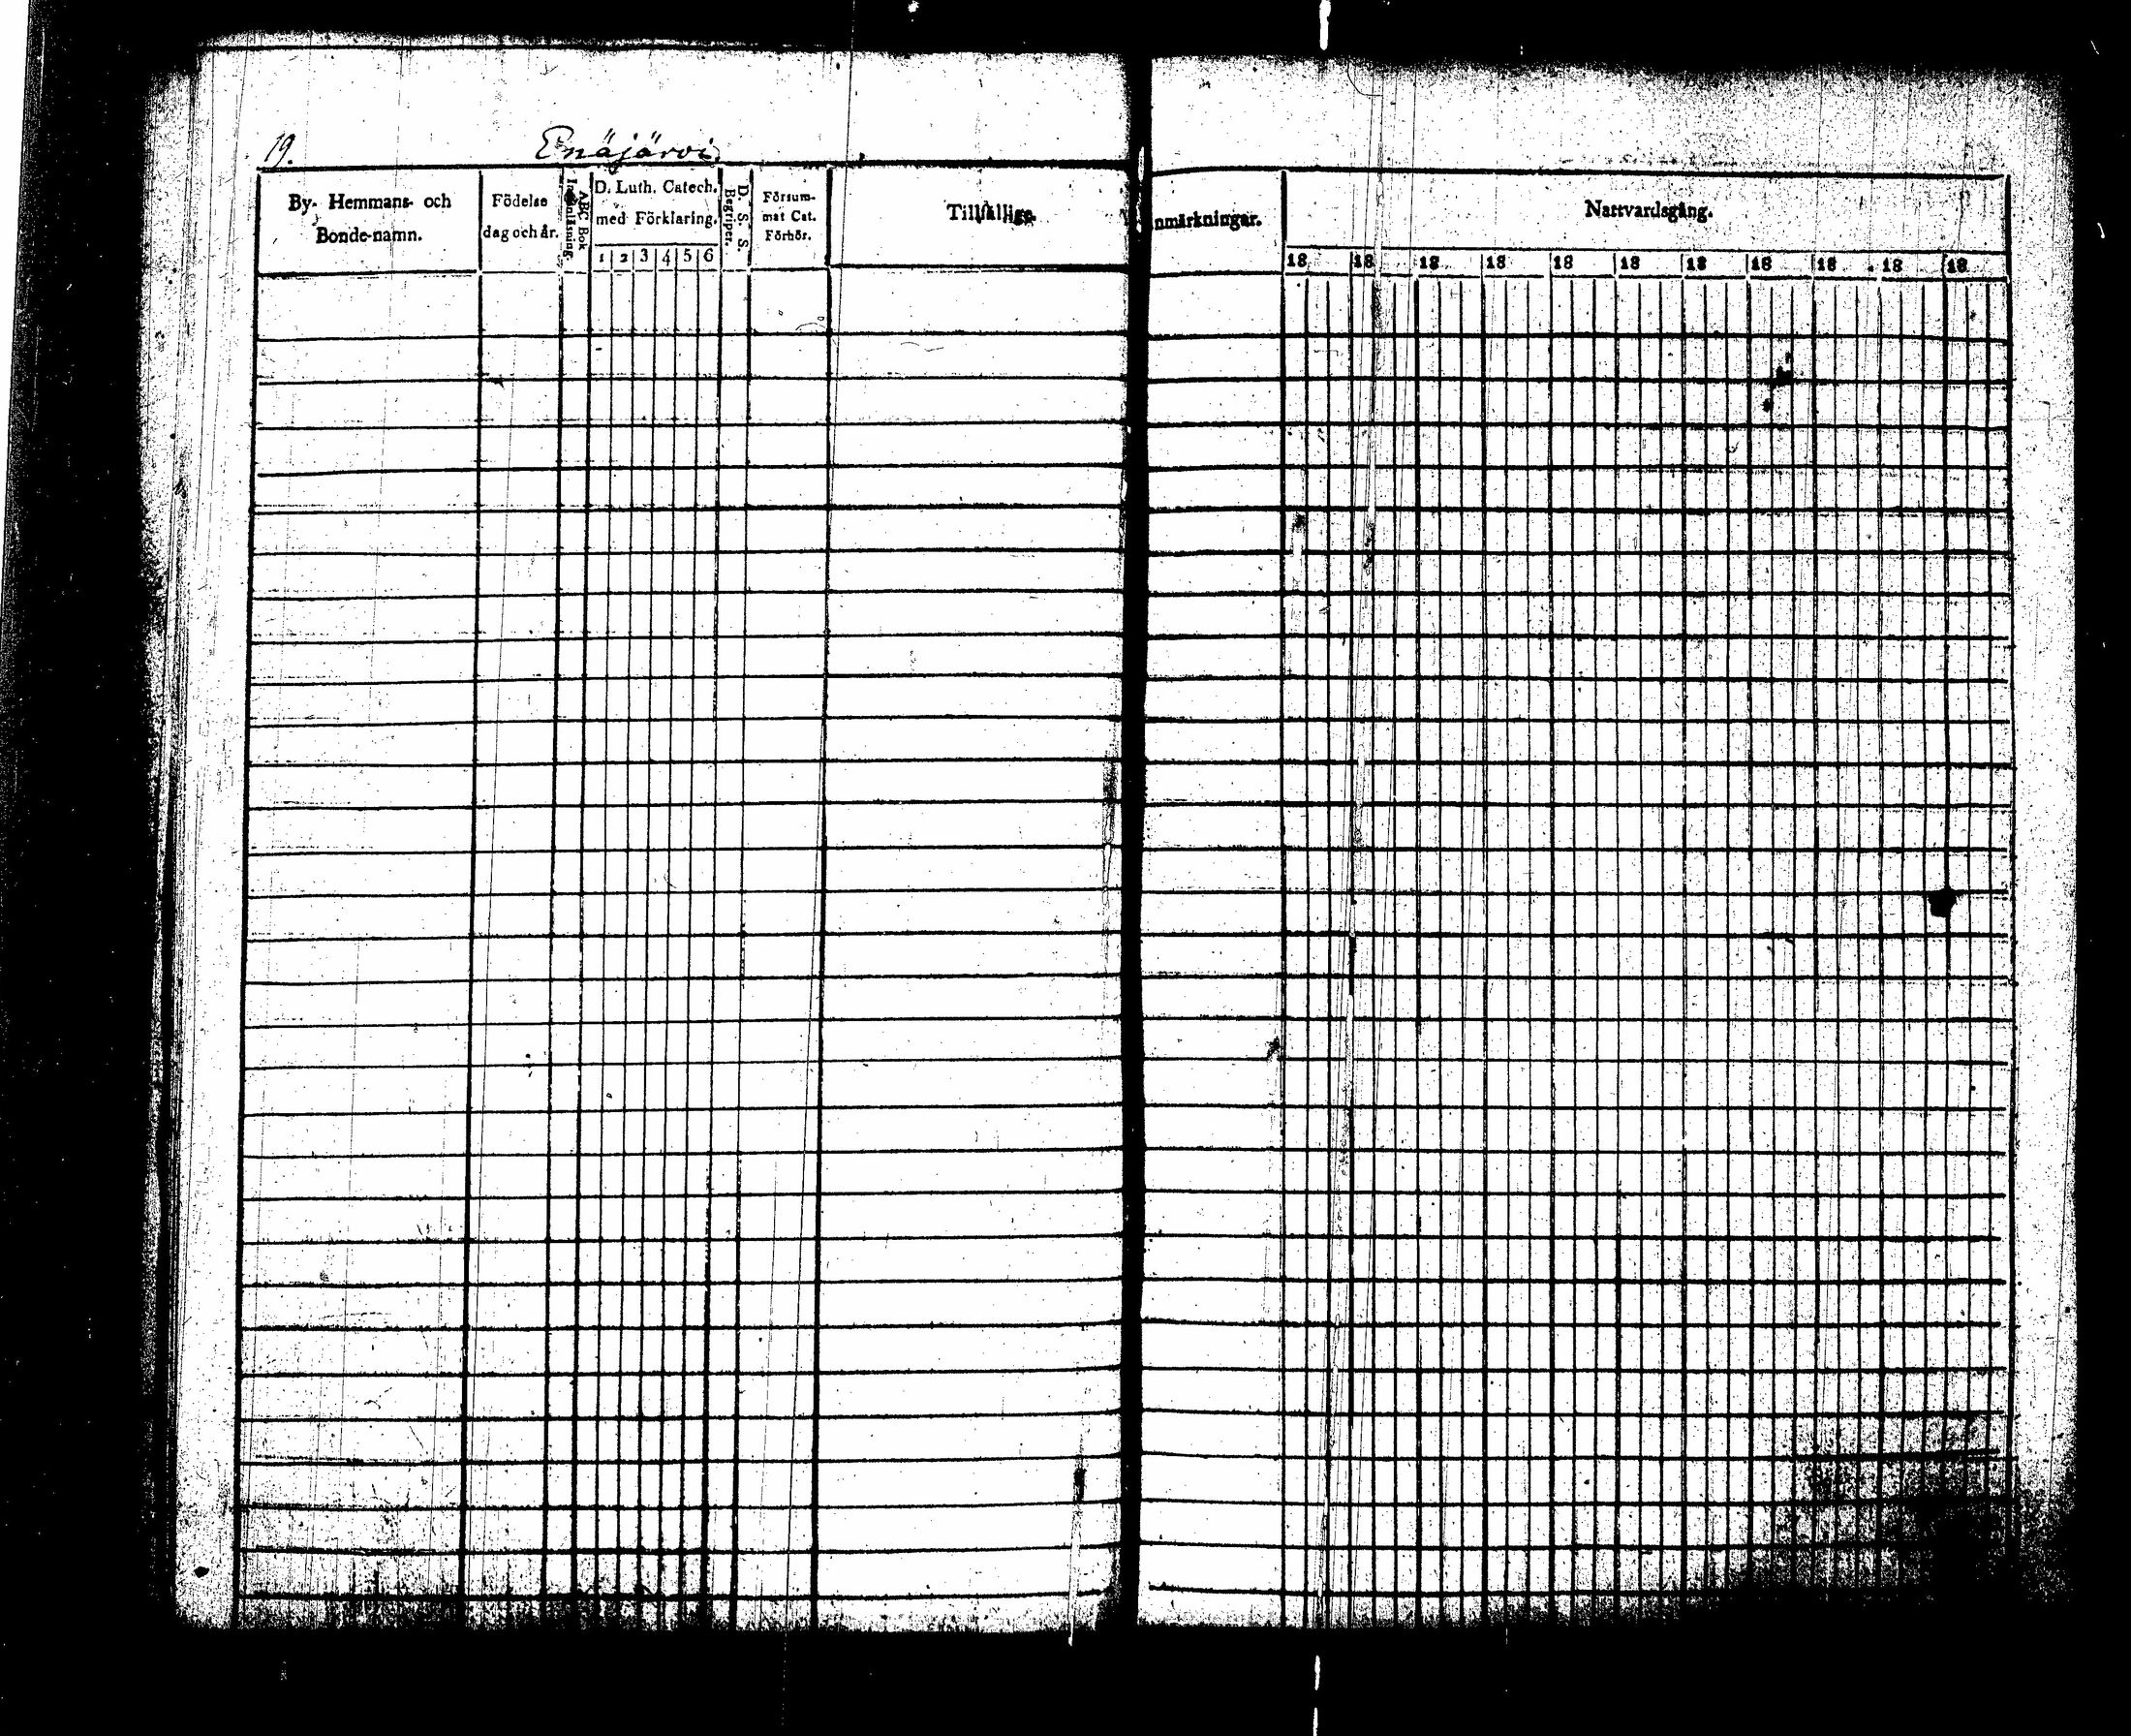 19.
Enäjärvi.
By- Hemmans- och
Bonde-namn.
Födelse
dag och år.
ABC Bok
Innanläsning.
D. Luth. Catech.
med Förklaring.
1 2 3 4 5 6
D. S. S.
Begriper.
Försum-
mat Cat.
Förhör.
Tillfällige
Anmärkningar.
Nattvardsgång.
18 18 18 18 18 18 18 18 18 18 18